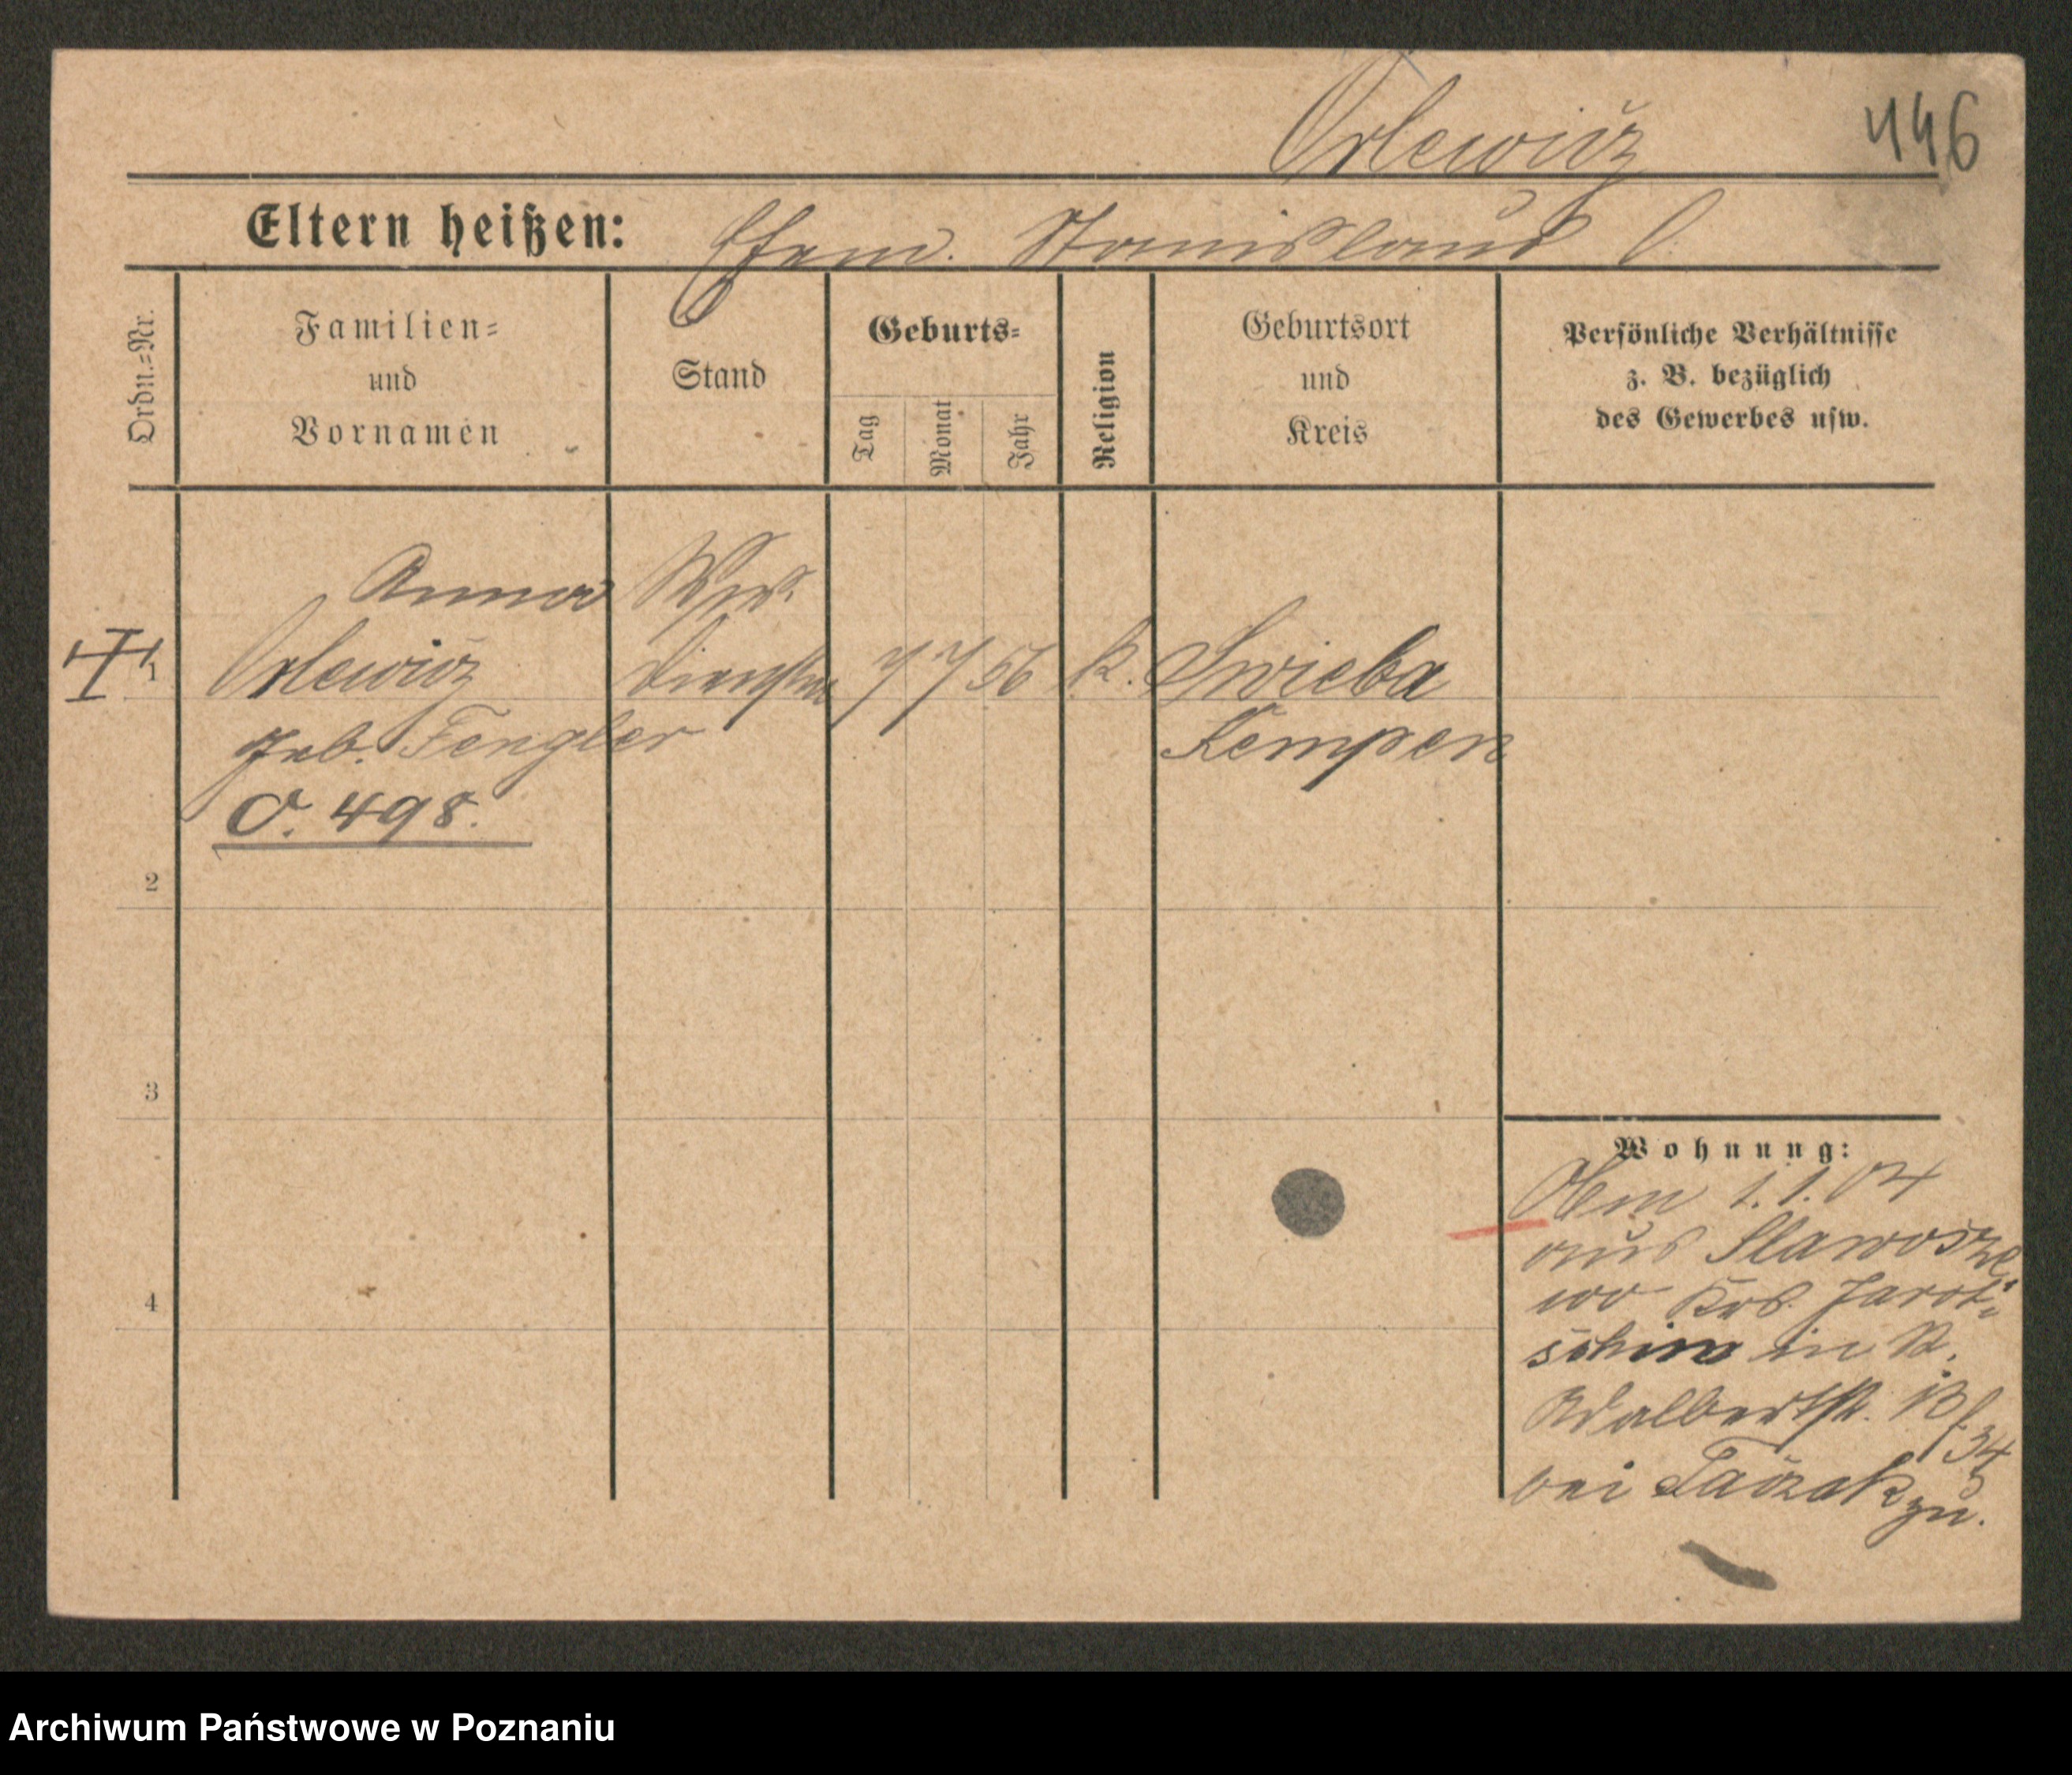 Orlewicz
446
Eltern heißen: Ehem. Stanislaus O.
Ordn.=Nr.
Familien=
und
Vornamen
Stand
Geburts=
Tag
Monat
Jahr
Religion
Geburtsort
und
Kreis
Persönliche Verhältnisse
z. B. bezüglich
des Gewerbes usw.
Anna Ww.
1 Orlewicz 7 7 56 k. Swieba
geb. Fengler Kempen
O. 498.
2
3
4
Wohnung:
1.1.04
aus Slawosze
wo Krs. Jarot=
schin in
Adalbertstr. 13/34
bei zu.
Archiwum Państwowe w Poznaniu